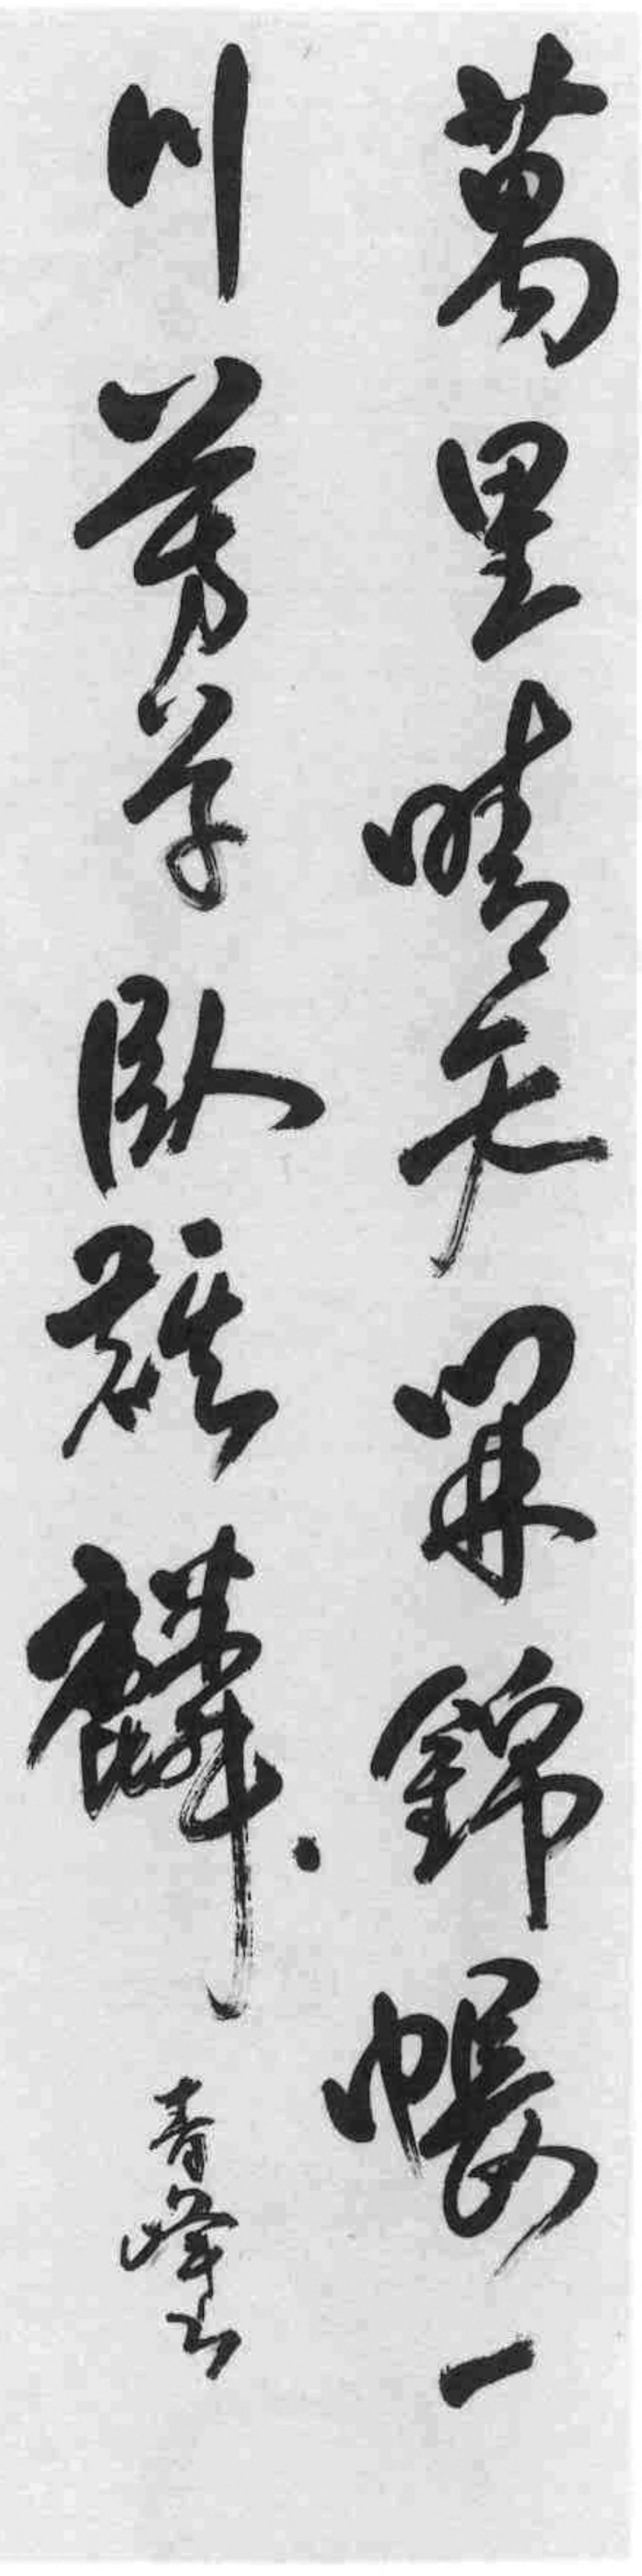 萬里晴天開錦帳一
川芳草臥麒麟 青峰